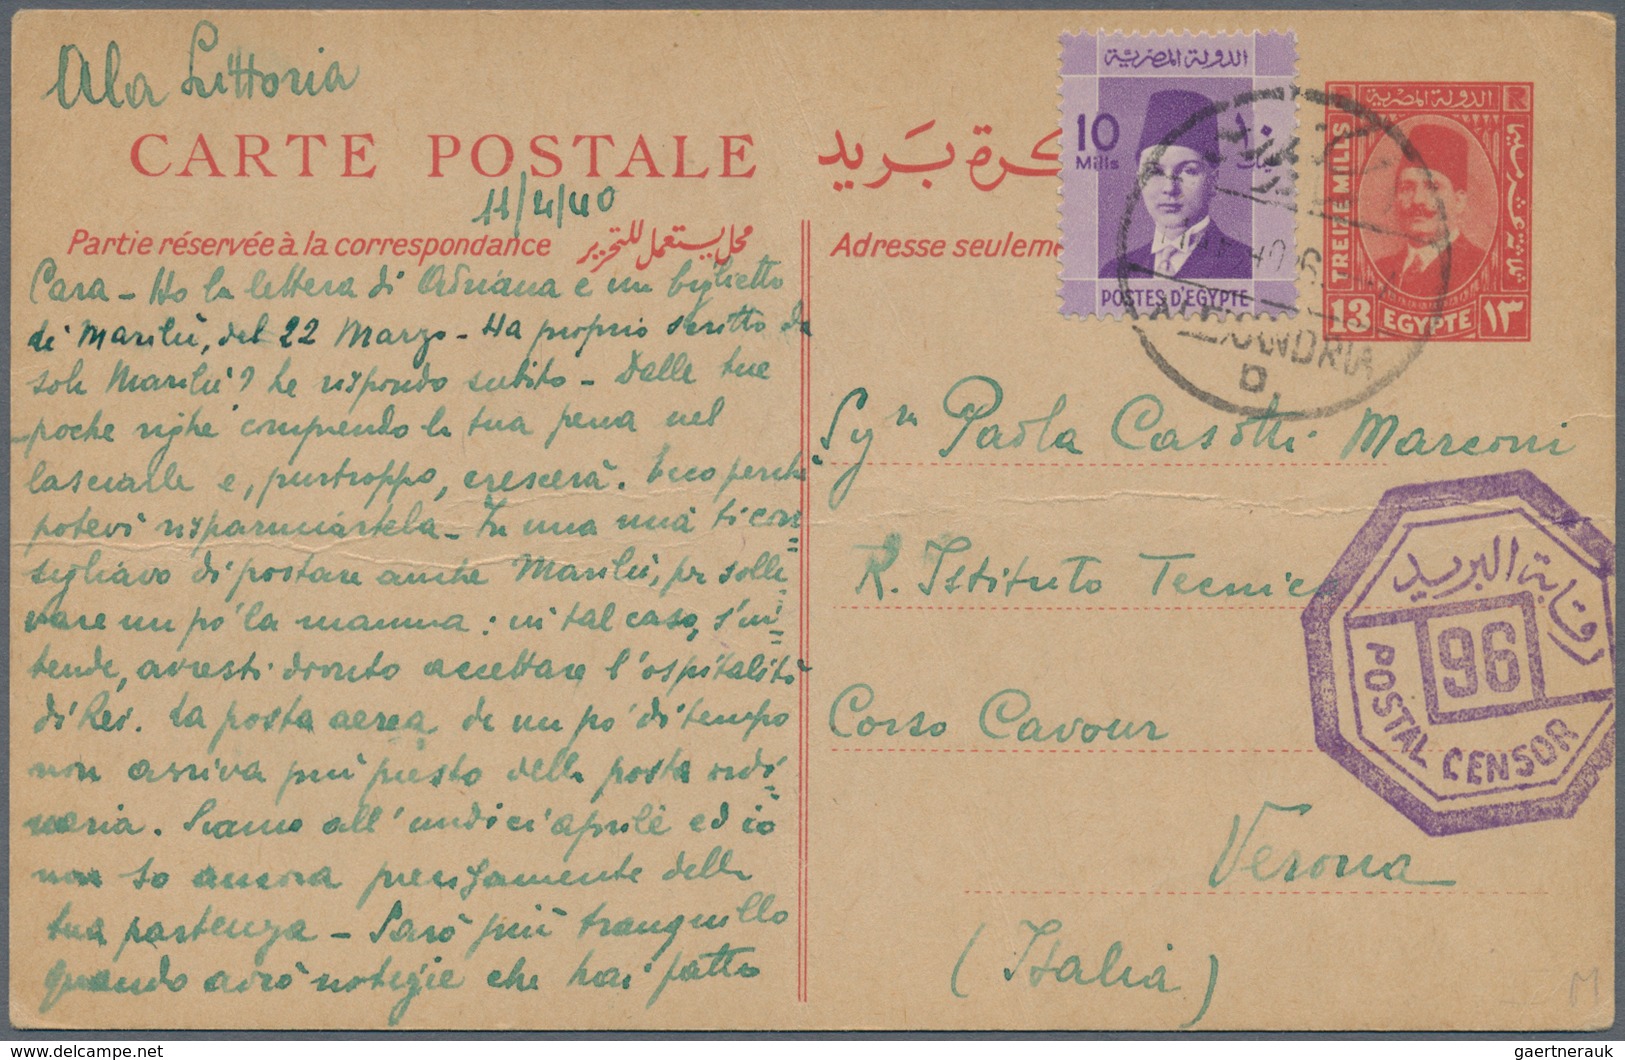 Ala Littoria
CARTE POSTALE
بريد
11/4/40
Partie réservée à la correspondance
محل يستعمل للتحرير
Adresse seuleme
الدولة المصرية
10
Mills
POSTES D'EGYPTE
الدولة المصرية
TREIZE MILLS
13 EGYPTE ١٣
ALEXANDRIA
D
Cara - Ho la lettera di Adriana e un biglietto
di Marilù, del 22 Marzo - Ha proprio scritto da
sola Marilù? Le rispondo subito - Dalle tue
poche righe comprendo la tua pena nel
lasciarle e, purtroppo, crescerà. Ecco perchè
potevi risparmiartela - In una mia ti con=
sigliavo di portare anche Marilù, per solle
vare un po' la mamma: in tal caso, s'in=
tende, avresti dovuto accettare l'ospitalità
di Rei. La posta aerea da un po' di tempo
non arriva più presto della posta ordi=
naria. Siamo all'undici aprile ed io
non so ancora precisamente della
tua partenza - Sarò più tranquillo
quando avrò notizie che hai fatto
Sigra Paola Casotti Marconi
R. Istituto Tecnico
Corso Cavour
Verona
(Italia)
رقابة البريد
96
POSTAL CENSOR
M
www.delcampe.net
gaertnerauk